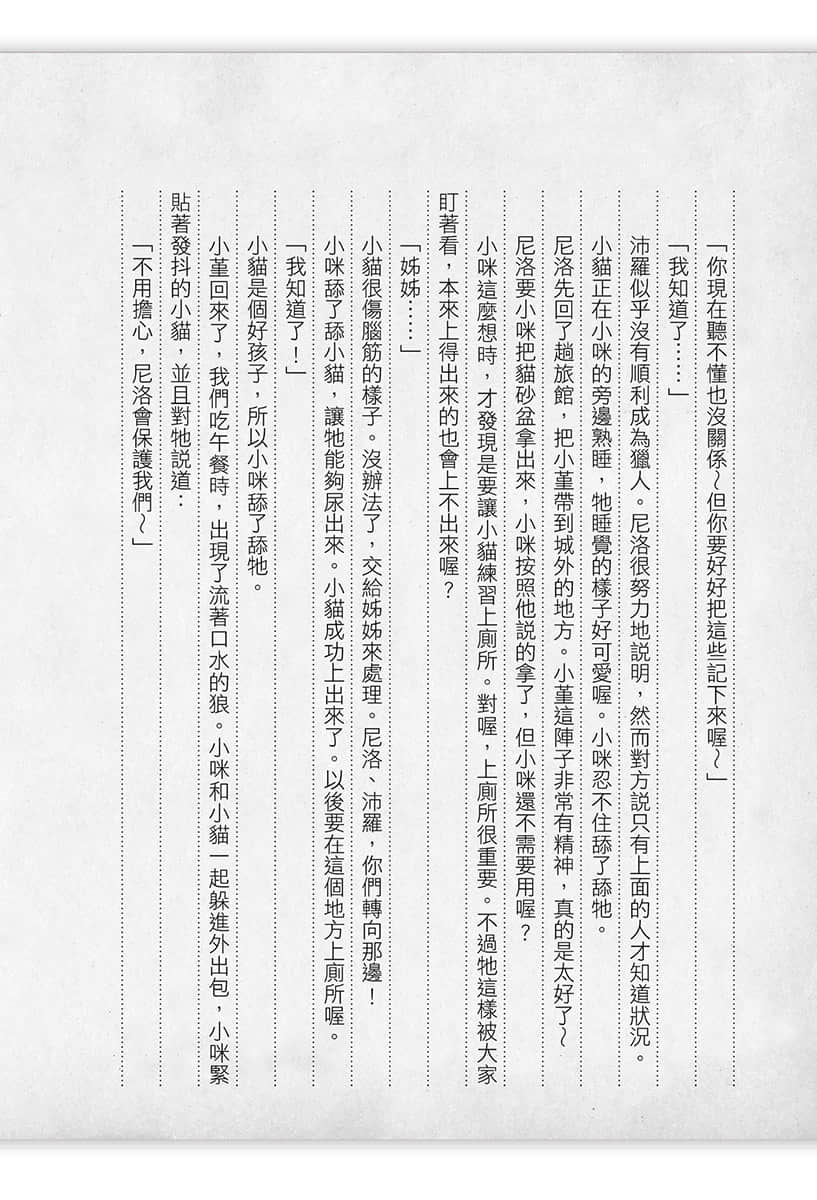 「你現在聽不懂也沒關係～但你要好好把這些記下來喔～」
「我知道了……」
沛羅似乎沒有順利成為獵人。尼洛很努力地說明，然而對方說只有上面的人才知道狀況。
小貓正在小咪的旁邊熟睡，牠睡覺的樣子好可愛喔。小咪忍不住舔了舔牠。
尼洛先回了趟旅館，把小堇帶到城外的地方。小堇這陣子非常有精神，真的是太好了～
尼洛要小咪把貓砂盆拿出來，小咪按照他說的拿了，但小咪還不需要用喔？
小咪這麼想時，才發現是要讓小貓練習上廁所。對喔，上廁所很重要。不過牠這樣被大家
盯著看，本來上得出來的也會上不出來喔？
「姊姊……」
小貓很傷腦筋的樣子。沒辦法了，交給姊姊來處理。尼洛、沛羅，你們轉向那邊！
小咪舔了舔小貓，讓牠能夠尿出來。小貓成功上出來了。以後要在這個地方上廁所喔。
「我知道了！」
小貓是個好孩子，所以小咪舔了舔牠。
小堇回來了，我們吃午餐時，出現了流著口水的狼。小咪和小貓一起躲進外出包，小咪緊
貼著發抖的小貓，並且對牠說道：
「不用擔心，尼洛會保護我們～」